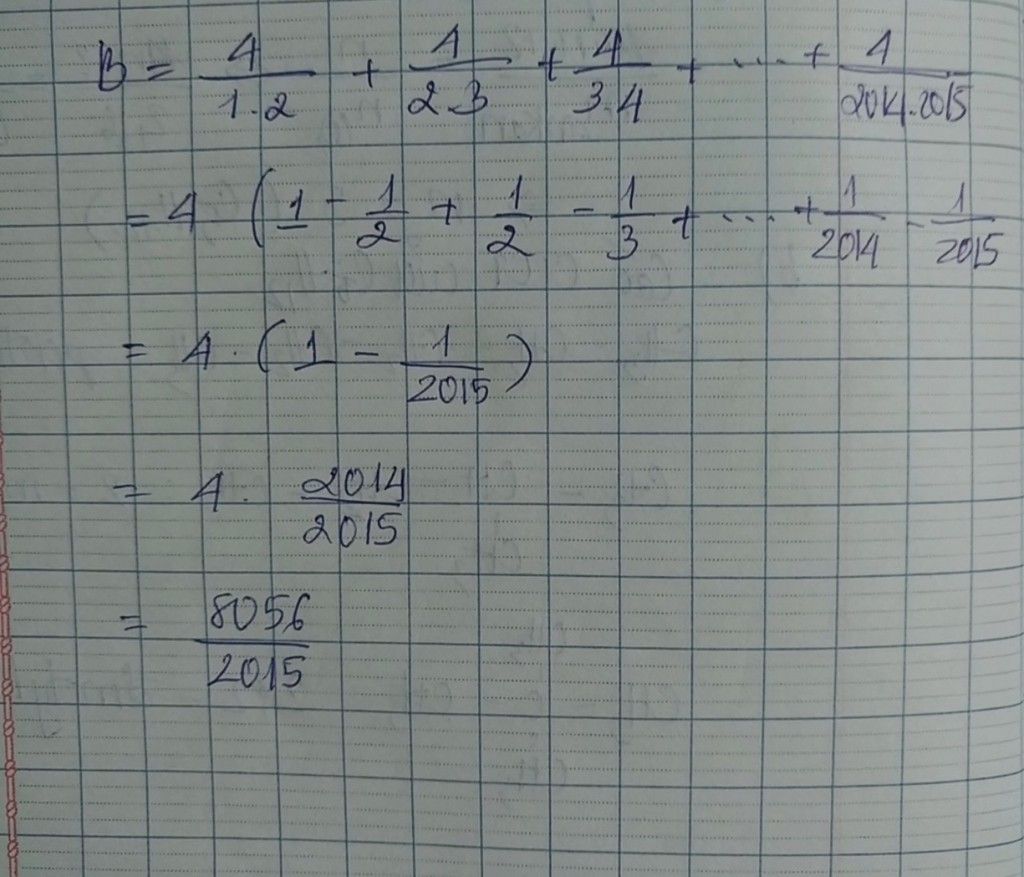 B = 4/1.2 + 4/2.3 + 4/3.4 + .... + 4/2014.2015
= 4 (1 - 1/2 + 1/2 - 1/3 + .... + 1/2014 - 1/2015
= 4 . (1 - 1/2015)
= 4 . 2014/2015
= 8056/2015